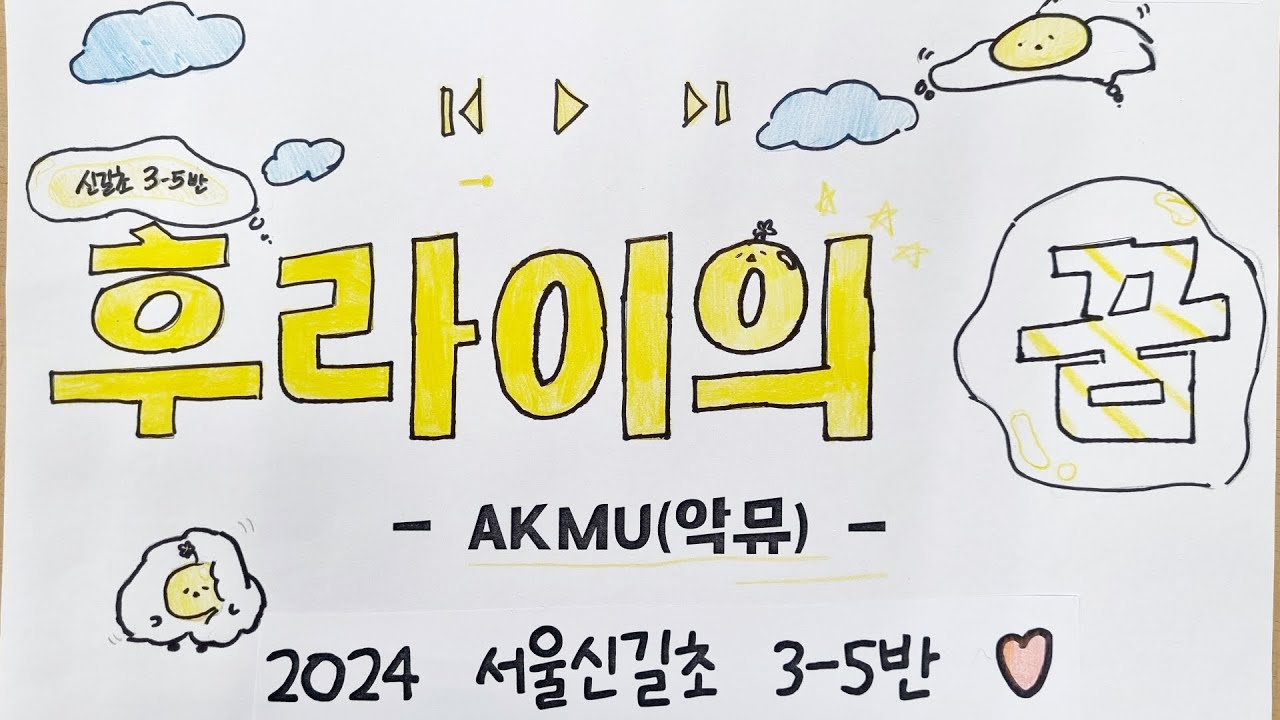 신길초 3-5반
후라이의 꿈
- AKMU(악뮤) -
2024 서울신길초 3-5반